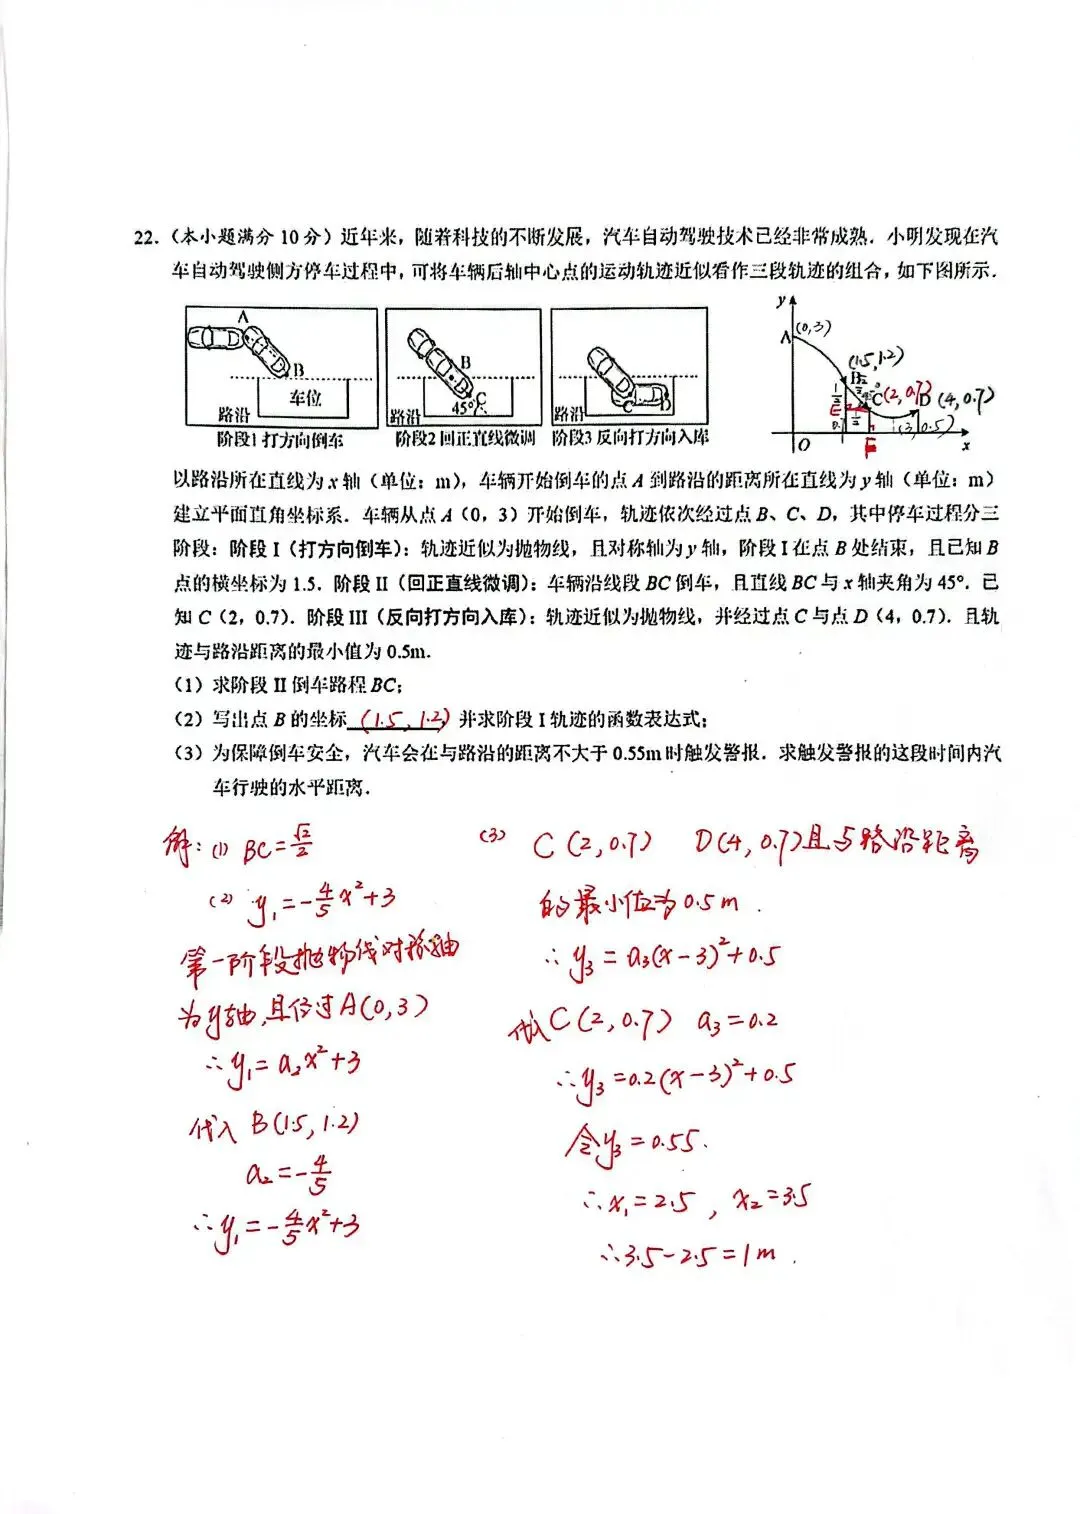 22.（本小题满分 10 分）近年来，随着科技的不断发展，汽车自动驾驶技术已经非常成熟．小明发现在汽
车自动驾驶侧方停车过程中，可将车辆后轴中心点的运动轨迹近似看作三段轨迹的组合，如下图所示．
A
B
车位
路沿
阶段1 打方向倒车
B
C
45°
路沿
阶段2 回正直线微调
C
D
路沿
阶段3 反向打方向入库
y
A
(0,3)
(1.5,1.2)
B
C
(2,0.7)
D
(4,0.7)
E
(3,0.5)
O
F
x
以路沿所在直线为 x 轴（单位：m），车辆开始倒车的点 A 到路沿的距离所在直线为 y 轴（单位：m）
建立平面直角坐标系．车辆从点 A（0，3）开始倒车，轨迹依次经过点 B、C、D，其中停车过程分三
阶段：阶段 I（打方向倒车）：轨迹近似为抛物线，且对称轴为 y 轴，阶段 I 在点 B 处结束，且已知 B
点的横坐标为 1.5．阶段 II（回正直线微调）：车辆沿线段 BC 倒车，且直线 BC 与 x 轴夹角为 45°．已
知 C（2，0.7）．阶段 III（反向打方向入库）：轨迹近似为抛物线，并经过点 C 与点 D（4，0.7）．且轨
迹与路沿距离的最小值为 0.5m．
（1）求阶段 II 倒车路程 BC；
（2）写出点 B 的坐标 (1.5, 1.2) 并求阶段 I 轨迹的函数表达式；
（3）为保障倒车安全，汽车会在与路沿的距离不大于 0.55m 时触发警报．求触发警报的这段时间内汽
车行驶的水平距离．
解：(1) BC=√2/2
(2) y₁=-4/5x²+3
第一阶段抛物线对称轴
为y轴，且经过A(0,3)
∴y₁=a₂x²+3
代入 B(1.5, 1.2)
a₂=-4/5
∴y₁=-4/5x²+3
(3) C(2,0.7) D(4,0.7)且与路沿距离
的最小值为0.5m.
∴y₃=a₃(x-3)²+0.5
代入C(2,0.7) a₃=0.2
∴y₃=0.2(x-3)²+0.5
令y₃=0.55.
∴x₁=2.5，x₂=3.5
∴3.5-2.5=1m.